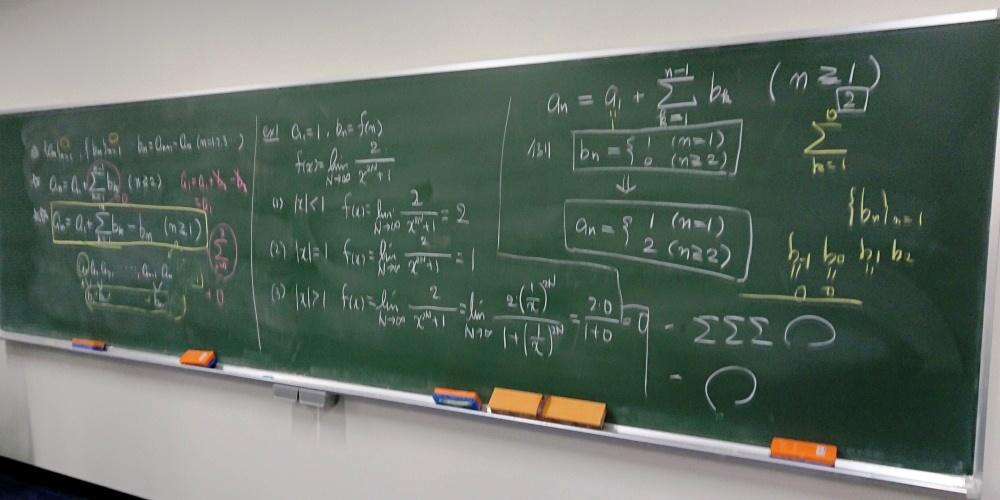 {aₙ}ₙ₌₁, {bₙ}ₙ₌₁ bₙ = aₙ₊₁ - aₙ
aₙ = a₁ + Σ bₖ (n≥2)
aₙ = a₁ + Σ bₖ - bₙ (n≥1)
ex1 a₁=1, bₙ=f(n)
f(x)=lim_{N→∞} 2/(x^{2N}+1)
(1) |x|<1 f(x)=lim_{N→∞} 2/(x^{2N}+1) = 2
(2) |x|=1 f(x)=lim_{N→∞} 2/(x^{2N}+1) = 1
(3) |x|>1 f(x)=lim_{N→∞} 2/(x^{2N}+1) = lim_{N→∞} 2(1/x)^{2N}/(1+(1/x)^{2N}) = 2·0/(1+0) = 0
aₙ = a₁ + Σ_{k=1}^{n-1} bₖ (n≥1)
2
Σ_{k=1}^{0}
例1 bₙ = { 1 (n=1)
0 (n≥2)
⇓
aₙ = { 1 (n=1)
2 (n≥2)
{bₙ}ₙ₌₁
b₋₁ b₀ b₁ b₂
0 0
- ΣΣΣ
-